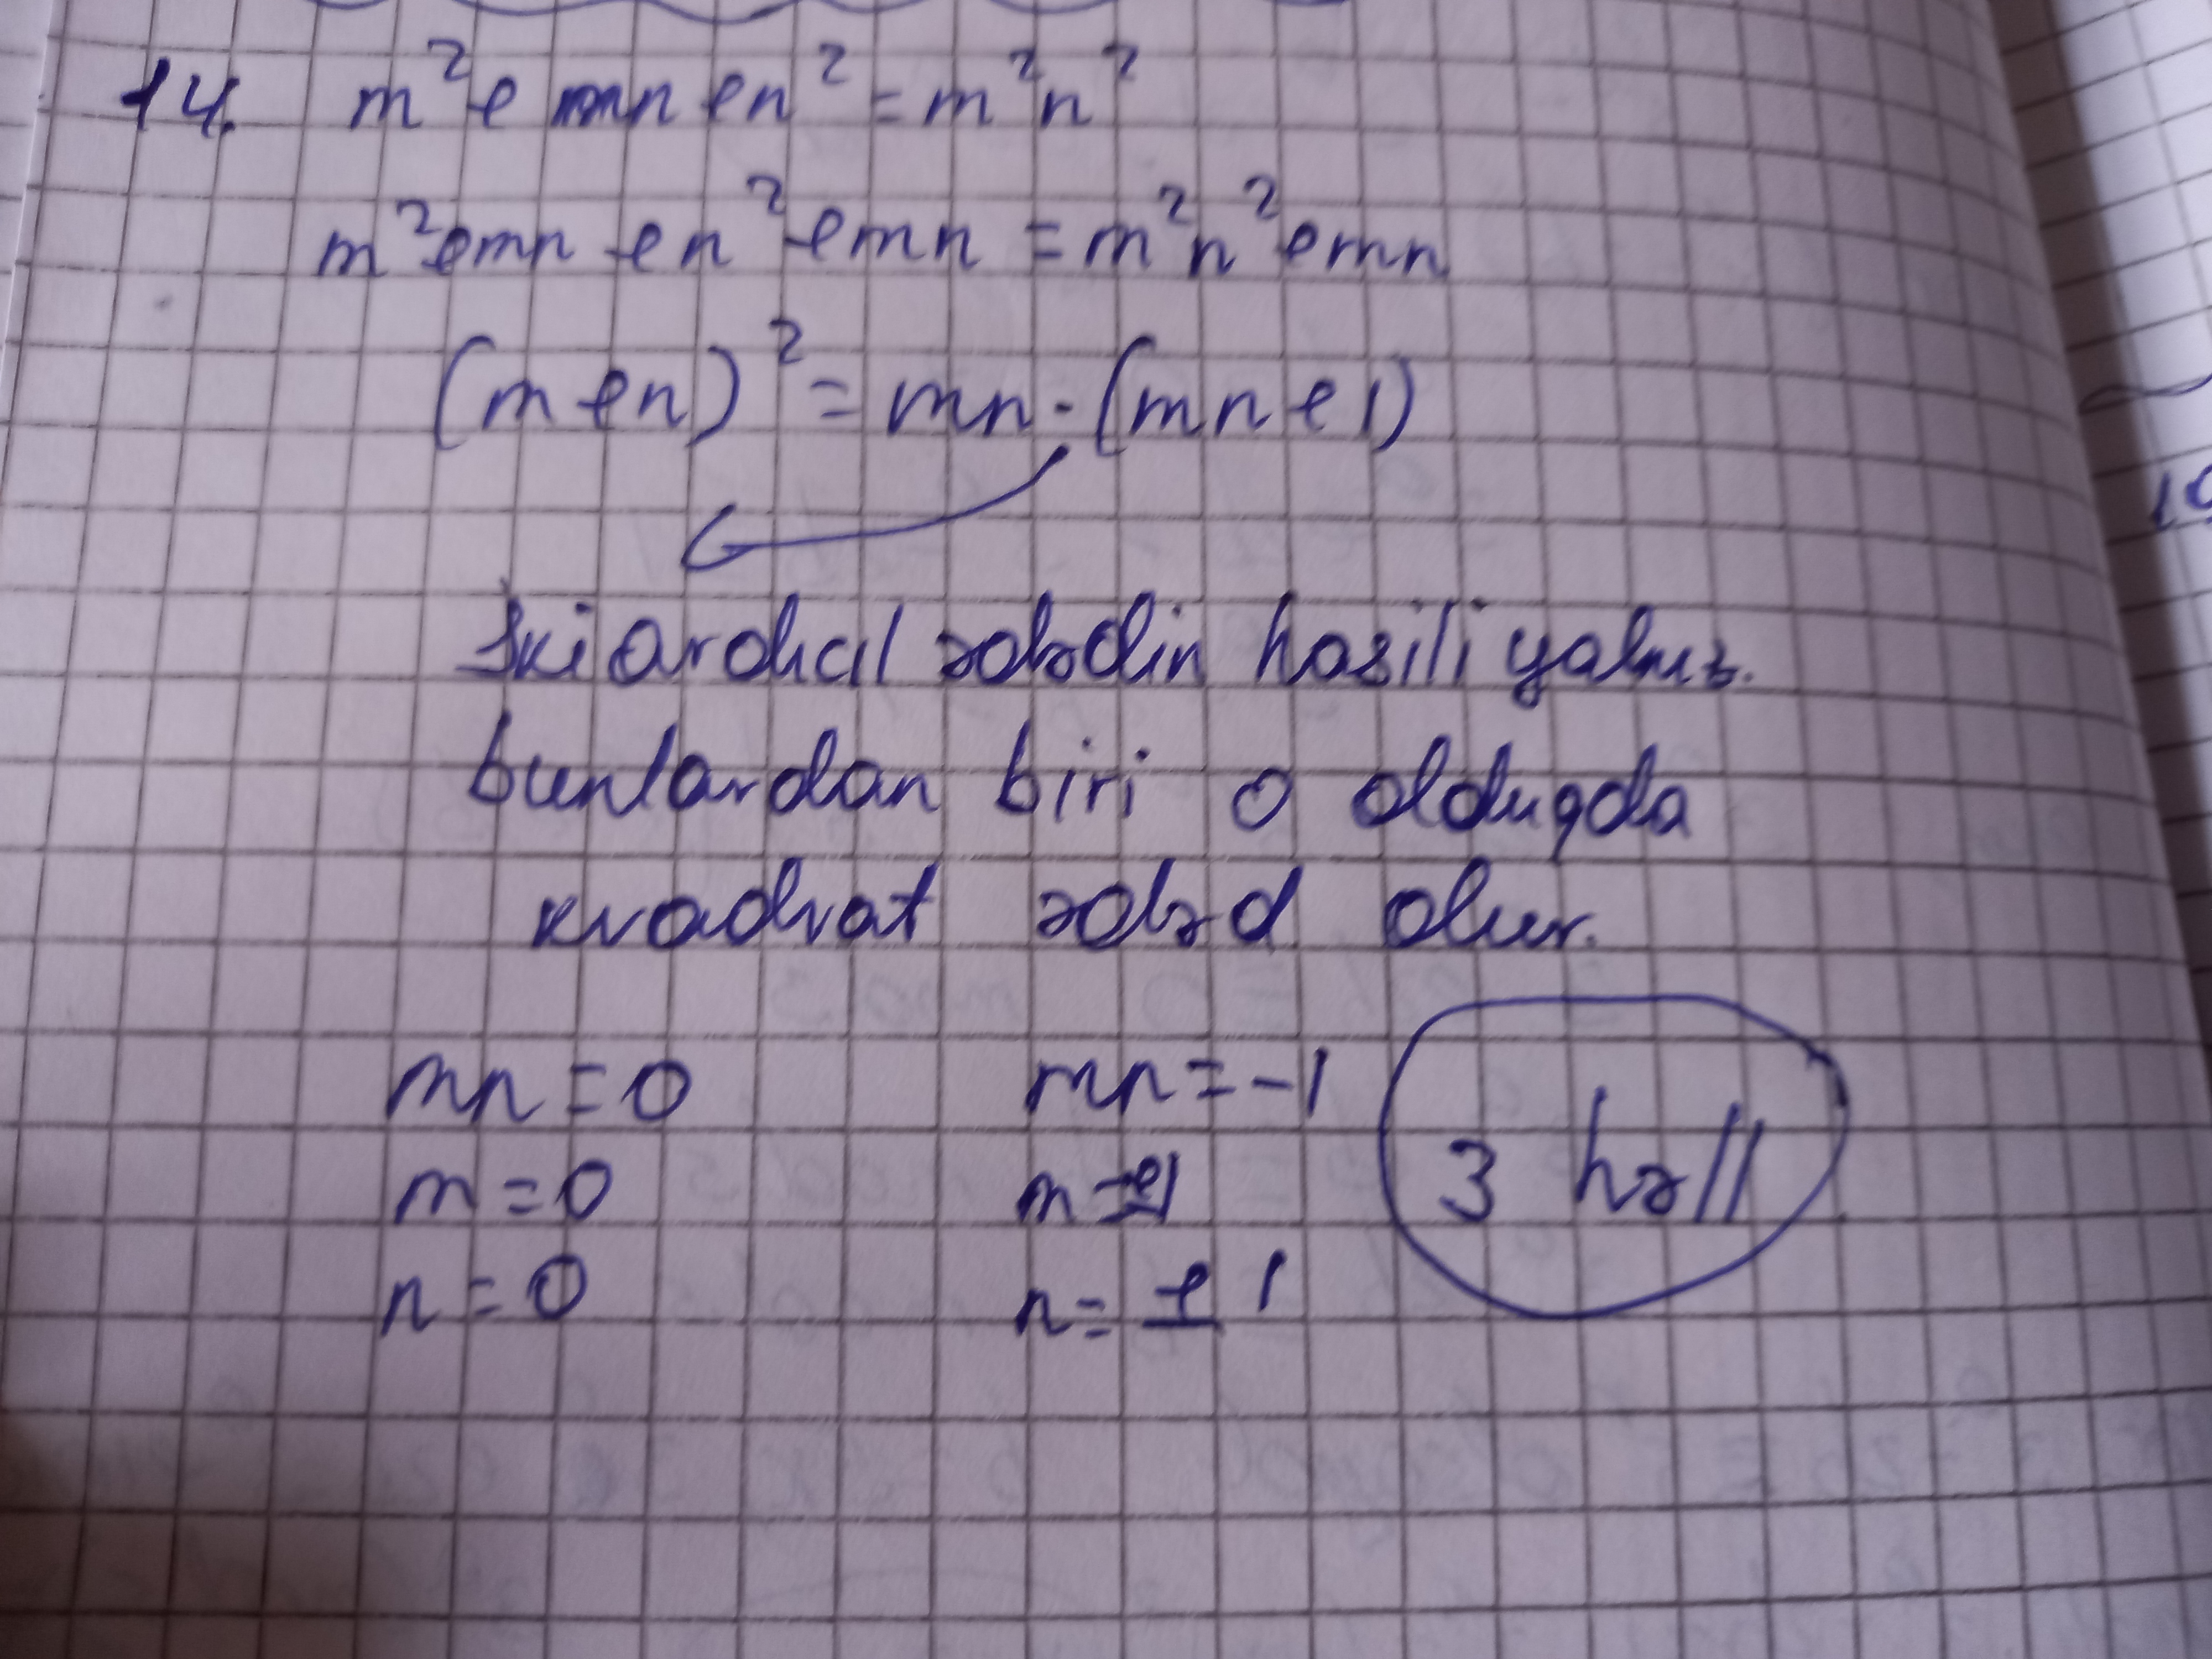 14. m²+mn+n²=m²n²
m²+mn+n²+mn=m²n²+mn
(m+n)²=mn·(mn+1)
İki ardıcıl ədədin hasili yalnız
bunlardan biri 0 olduqda
kvadrat ədəd olur.
mn=0 mn=-1
m=0 m=±1 3 həll
n=0 n=±1